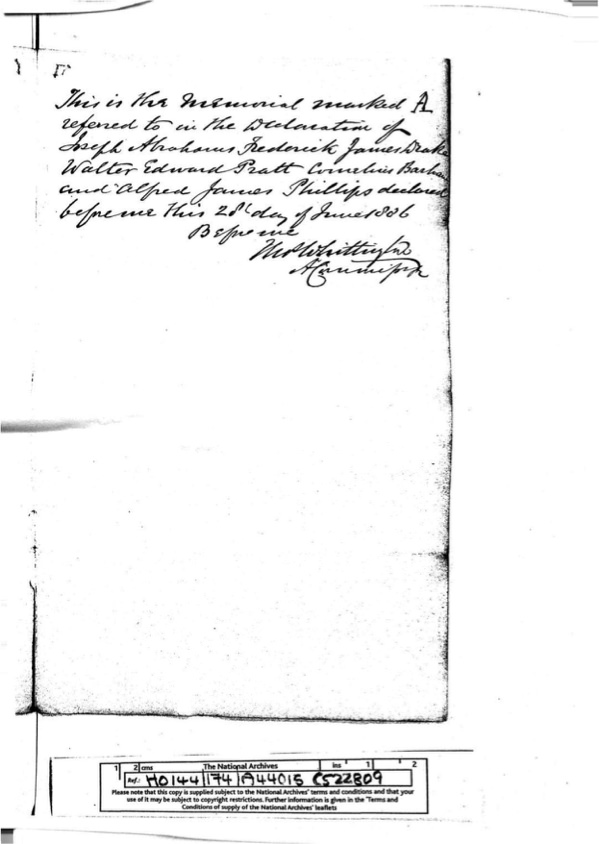 This is the Memorial marked A
referred to in the Declaration of
Joseph Abrahams Frederick James Drake
Walter Edward Pratt Cornelius
and Alfred James Phillips declared
before me this 28th day of June 1886
Before me
Whittington
A Commissr
1 2 cms The National Archives ins 1 2
Ref.: HO144 174 A44015 C522809
Please note that this copy is supplied subject to the National Archives' terms and conditions and that your
use of it may be subject to copyright restrictions. Further information is given in the 'Terms and
Conditions of supply of the National Archives' leaflets